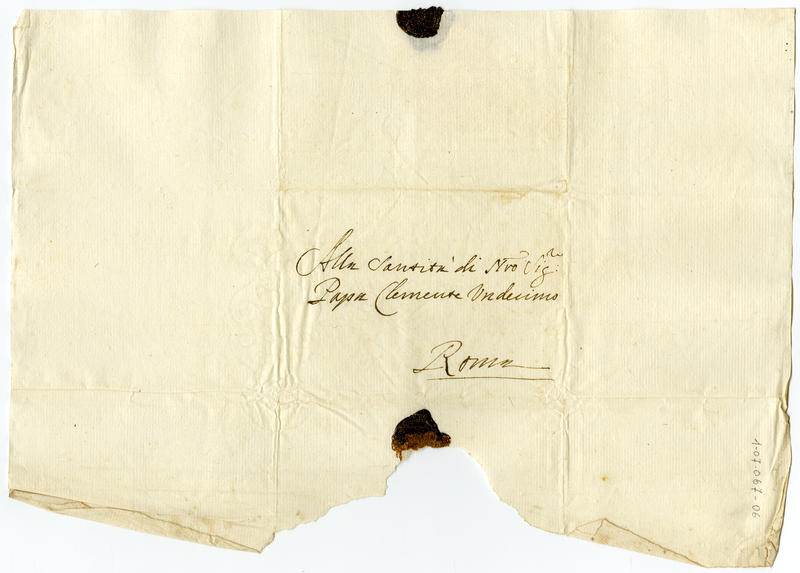 Alla Santità di Nro Sig.re
Papa Clemente Undecimo
Roma
1-01-067-06